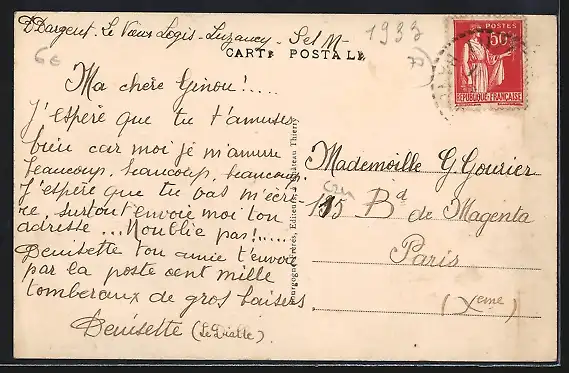 D Dargent. Le Vieux Logis - Luzancy - S et M -
1933
CARTE POSTALE
Ma chère Ginou!.....
J'espère que tu t'amuses
bien car moi je m'amuse
beaucoup, beaucoup, beaucoup.
J'espère que tu vas m'écri
re, surtout envoie moi ton
adresse... N'oublie pas!.....
Denisette ton amie t'envoie
par la poste cent mille
tombereaux de gros baisers
Denisette (Le Diable).
Bourgogne Frères, Editeurs, Château Thierry
POSTES
50c
REPUBLIQUE FRANÇAISE
Mademoille G. Gourier
115 Bd de Magenta
Paris
(Xeme)